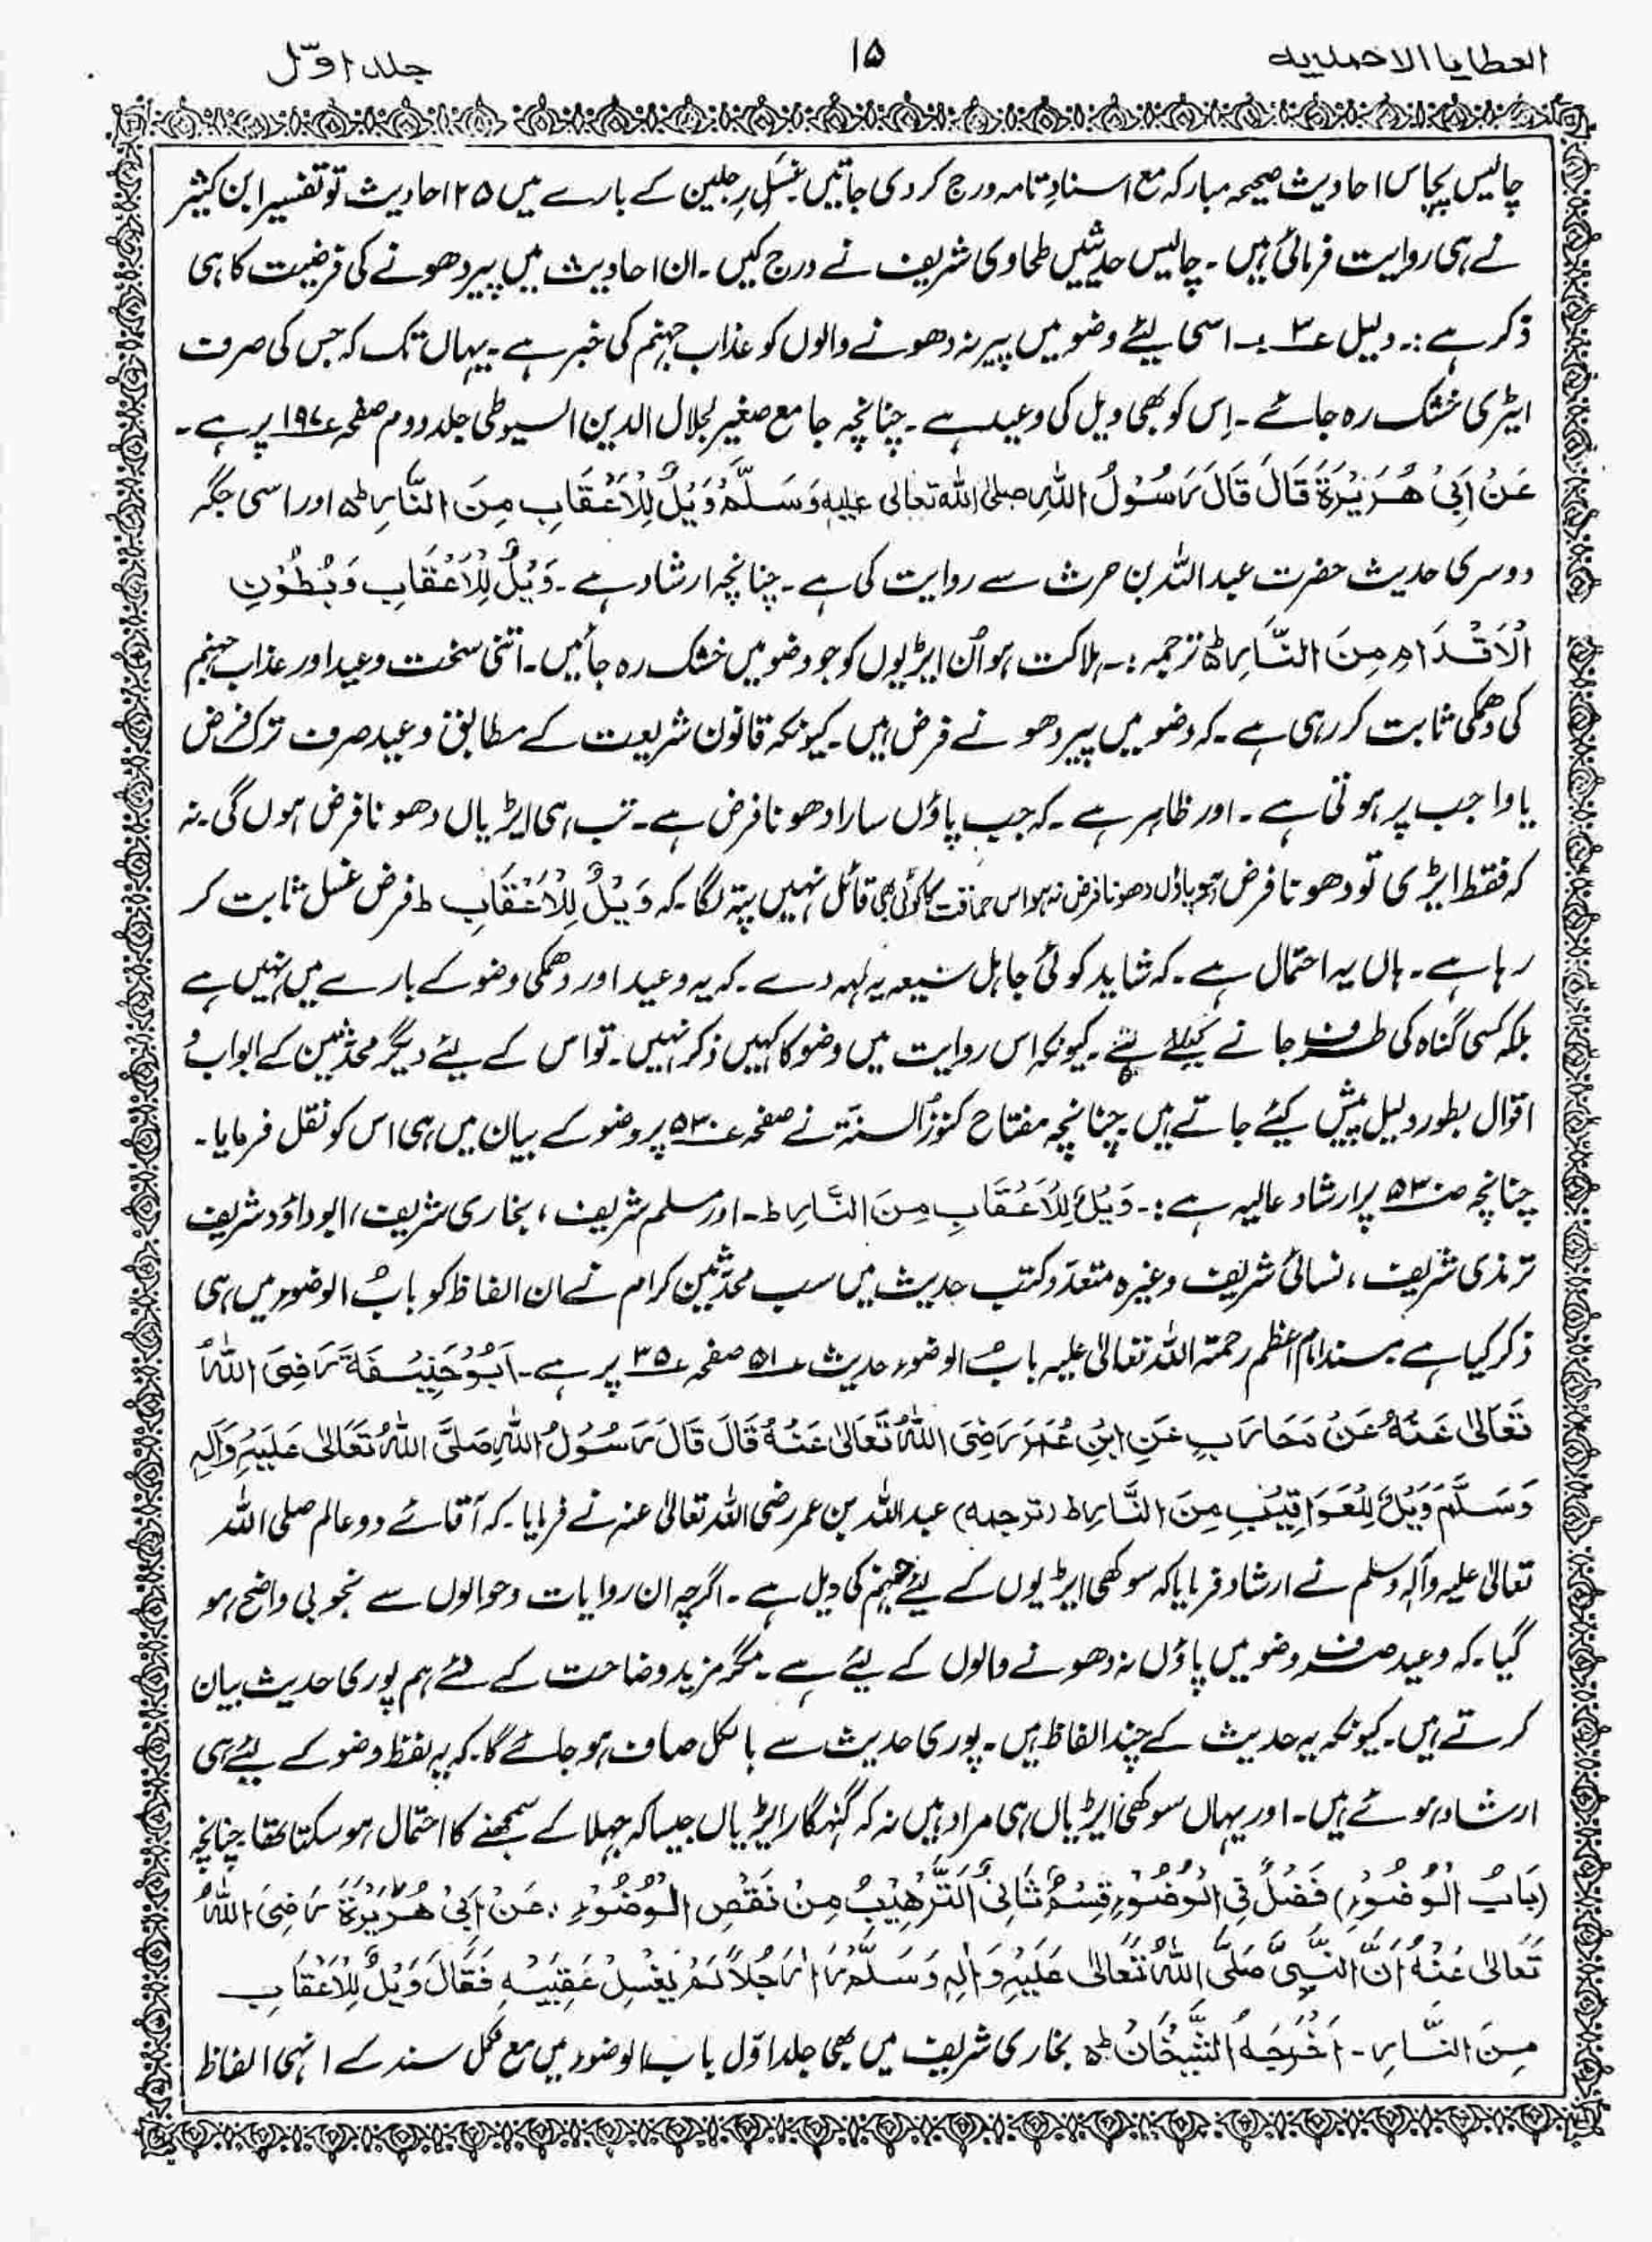 العطایا الاحمدیہ
۱۵
جلد اوّل
چالیس پچاس احادیث صحیحہ مبارکہ مع اسنادِ تامہ درج کر دی جاتیں غسلِ رِجلین کے بارے میں ۲۵ احادیث تو تفسیر ابن کثیر
نے ہی روایت فرمائی ہیں۔ چالیس حدیثیں طحاوی شریف نے درج کیں۔ ان احادیث میں پیر دھونے کی فرضیت کا ہی
ذکر ہے :۔ دلیل ۳ :۔ اسی لیئے وضو میں پیر نہ دھونے والوں کو عذاب جہنم کی خبر ہے۔ یہاں تک کہ جس کی صرف
ایٹری خشک رہ جائے۔ اِس کو بھی ویل کی وعید ہے۔ چنانچہ جامع صغیر لجلال الدین السیوطی جلد دوم صفحہ ۱۹۷ پر ہے۔
عَنْ اَبِیْ هُرَیْرَةَ قَالَ قَالَ رَسُوْلُ اللّٰهِ صلی اللّٰه تعالی علیه وَسَلَّمْ وَیْلٌ لِّلْاَعْقَابِ مِنَ النَّارِ ط اور اسی جگہ
دوسری حدیث حضرت عبد اللہ بن حرث سے روایت کی ہے۔ چنانچہ ارشاد ہے۔ وَیْلٌ لِّلْاَعْقَابِ وَبُطُوْنِ
الْاَقْدَامِ مِنَ النَّارِ ط ترجمہ :۔ ہلاکت ہو اُن ایڑیوں کو جو وضو میں خشک رہ جائیں۔ اتنی سخت وعید اور عذاب جہنم
کی دھمکی ثابت کر رہی ہے۔ کہ وضو میں پیر دھونے فرض ہیں۔ کیونکہ قانون شریعت کے مطابق وعید صرف ترک فرض
یا واجب پر ہوتی ہے۔ اور ظاہر ہے۔ کہ جب پاؤں سارا دھونا فرض ہے۔ تب ہی ایڑیاں دھونا فرض ہوں گی۔ نہ
کہ فقط ایڑی تو دھونا فرض ہو پاؤں دھونا فرض نہ ہو اس حماقت کا کوئی بھی قائل نہیں پتہ لگا۔ کہ وَیْلٌ لِّلْاَعْقَابِ ط فرض غسل ثابت کر
رہا ہے۔ ہاں یہ احتمال ہے۔ کہ شاید کوئی جاہل شیعہ یہ کہہ دے۔ کہ یہ وعید اور دھمکی وضو کے بارے میں نہیں ہے
بلکہ کسی گناہ کی طرف جانے کیلئے ہے۔ کیونکہ اس روایت میں وضو کا کہیں ذکر نہیں۔ تو اس کے لیئے دیگر محدثین کے ابواب و
اقوال بطور دلیل پیش کیئے جاتے ہیں چنانچہ مفتاح کنوز السنۃ نے صفحہ ۵۳۰ پر وضو کے بیان میں ہی اس کو نقل فرمایا۔
چنانچہ صـ ۵۳۰ پر ارشاد عالیہ ہے :۔ وَیْلٌ لِّلْاَعْقَابِ مِنَ النَّارِ ط۔ اور مسلم شریف، بخاری شریف، ابو داؤد شریف
ترمذی شریف، نسائی شریف وغیرہ متعدّد کتب حدیث میں سب محدّثین کرام نے ان الفاظ کو بابُ الوضوء میں ہی
ذکر کیا ہے مسند امام اعظم رحمتہ اللہ تعالیٰ علیہ بابُ الوضوء حدیث ۵۱ صفحہ ۳۵ پر ہے۔ اَبُوْحَنِیْفَةَ رَضِیَ اللّٰهُ
تَعَالٰی عَنْهُ عَنْ مَحَارِبٍ عَنِ ابْنِ عُمَرَ رَضِیَ اللّٰهُ تَعَالٰی عَنْهُ قَالَ قَالَ رَسُوْلُ اللّٰهِ صَلَّی اللّٰهُ تَعَالٰی عَلَیْهِ وَاٰلِهٖ
وَسَلَّمَ وَیْلٌ لِّلْعَرَاقِیْبِ مِنَ النَّارِ ط (ترجمہ) عبد اللہ بن عمر رضی اللہ تعالیٰ عنہ نے فرمایا۔ کہ آقائے دو عالم صلی اللہ
تعالیٰ علیہ وآلہٖ وسلم نے ارشاد فرمایا کہ سوکھی ایڑیوں کے لیئے جہنم کی ویل ہے۔ اگرچہ ان روایات و حوالوں سے بخوبی واضح ہو
گیا۔ کہ وعید صرف وضو میں پاؤں نہ دھونے والوں کے لیئے ہے۔ مگر مزید وضاحت کے لئے ہم پوری حدیث بیان
کرتے ہیں۔ کیونکہ یہ حدیث کے چند الفاظ ہیں۔ پوری حدیث سے بالکل صاف ہو جائے گا۔ کہ یہ لفظ وضو کے لیئے ہی
ارشاد ہوئے ہیں۔ اور یہاں سوکھی ایڑیاں ہی مراد ہیں نہ کہ گنہگار ایڑیاں جیسا کہ جہلا کے سمجھنے کا احتمال ہو سکتا تھا چنانچہ
(بَابُ الْوُضُوْءِ) فَضْلٌ فِی الْوُضُوْءِ قِسْمُ ثَانِیْ اَلتَّرْهِیْبُ مِنْ نَقْصِ الْوُضُوْءِ۔ عَنْ اَبِیْ هُرَیْرَةَ رَضِیَ اللّٰهُ
تَعَالٰی عَنْهُ اَنَّ النَّبِیَّ صَلَّی اللّٰهُ تَعَالٰی عَلَیْهِ وَاٰلِهٖ وَسَلَّمَ رَاٰ رَجُلًا لَمْ یَغْسِلْ عَقِبَیْهِ فَقَالَ وَیْلٌ لِّلْاَعْقَابِ
مِنَ النَّارِ۔ اَخْرَجَهُ الشَّیْخَانُ ط بخاری شریف میں بھی جلد اوّل باب الوضوء میں مع مکمل سند کے انہی الفاظ